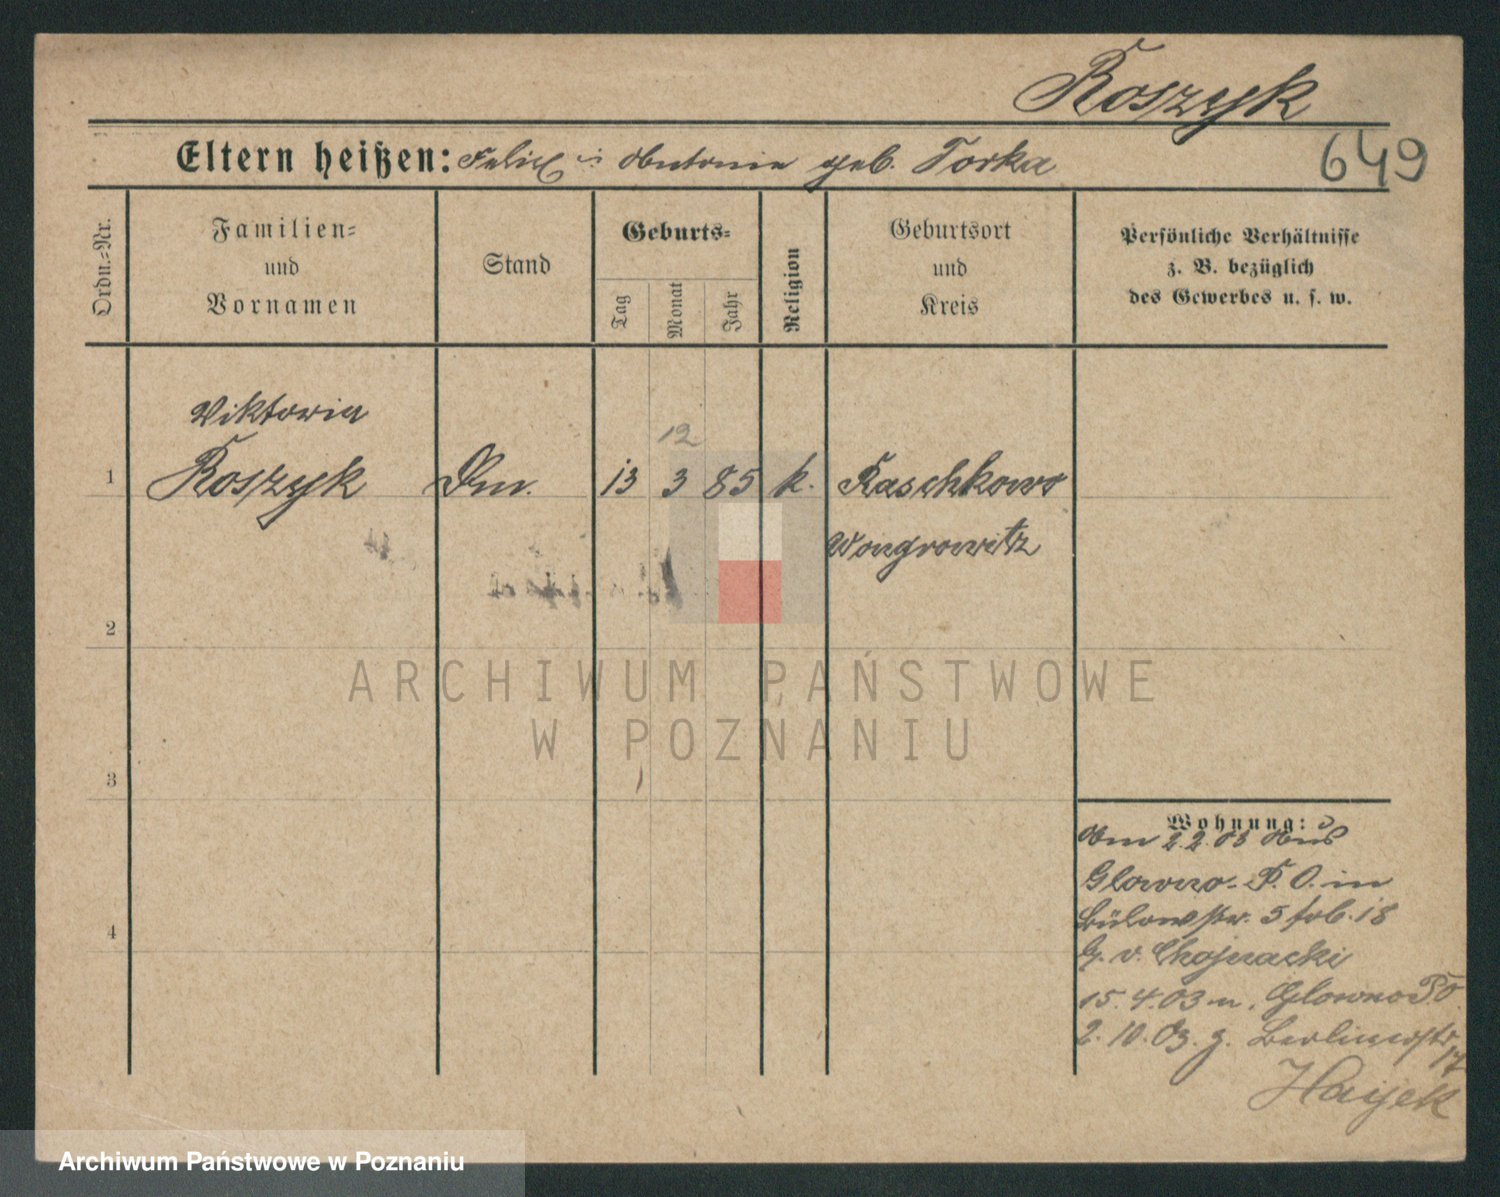 Koszyk
Eltern heißen: Felix u. Antonie geb. Torka
649
Ordn.-Nr.
Familien-
und
Vornamen
Stand
Geburts-
Tag
Monat
Jahr
Religion
Geburtsort
und
Kreis
Persönliche Verhältnisse
z. B. bezüglich
des Gewerbes u. s. w.
Viktoria
12
1 Koszyk Dm. 13 3 85 k. Raschkowo
Wongrowitz
2
ARCHIWUM PAŃSTWOWE
W POZNANIU
3
Wohnung:
2.2.03 aus
Glowno P. O. in
Bülowstr. 5 18
b. v. Chojnacki
4
15.4.03 n. Glowno P.O.
2.10.03. z. Berlinerstr
17
Hayek
Archiwum Państwowe w Poznaniu